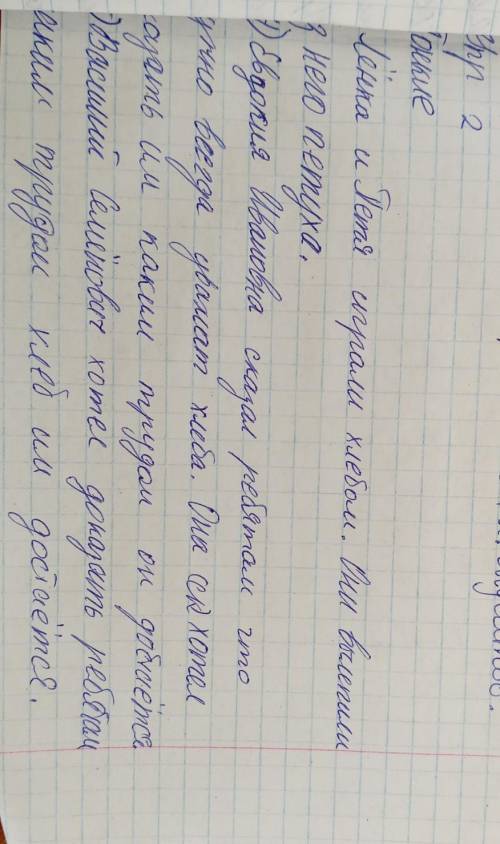 Упр 2
Лёнка и Петя играли хлебом. Они вылепили
з него петуха.
1) Евдокия Ивановна сказал ребятам что
ужно всегда уважат хлеба. Она хотел
казать им каким трудом он добиётся
) Василий Семёнович хотел доказать ребятам
ким трудом хлеб им достаётся.